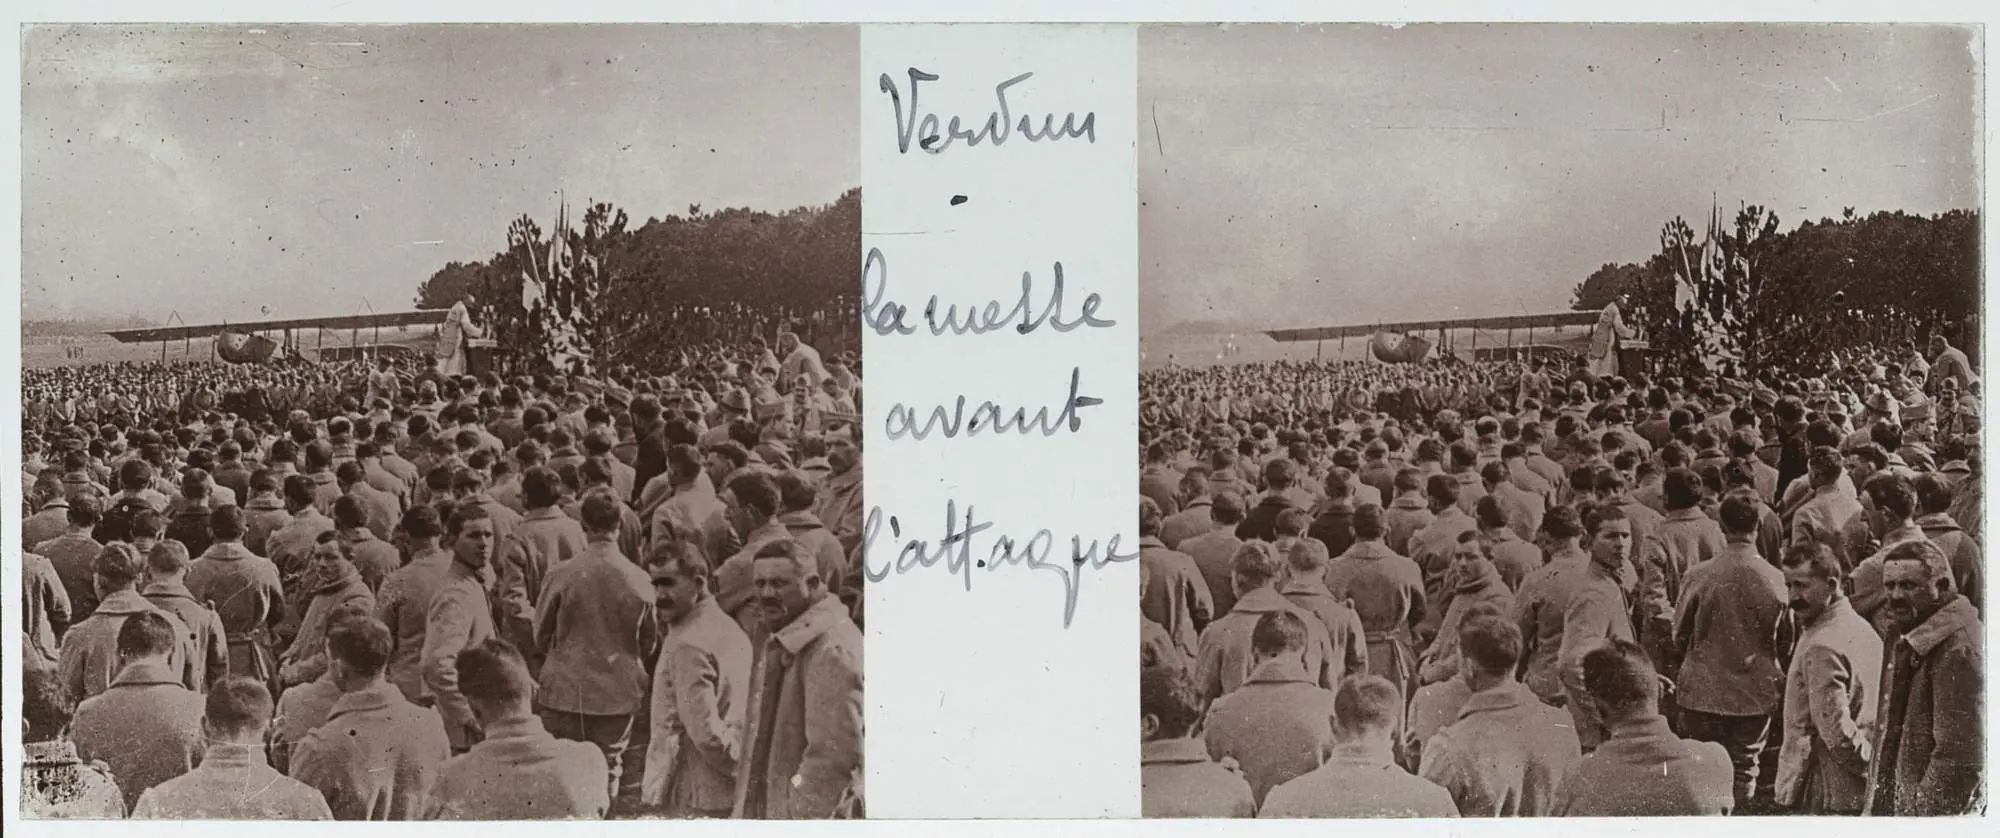 Verdun
-
la messe
avant
l'attaque